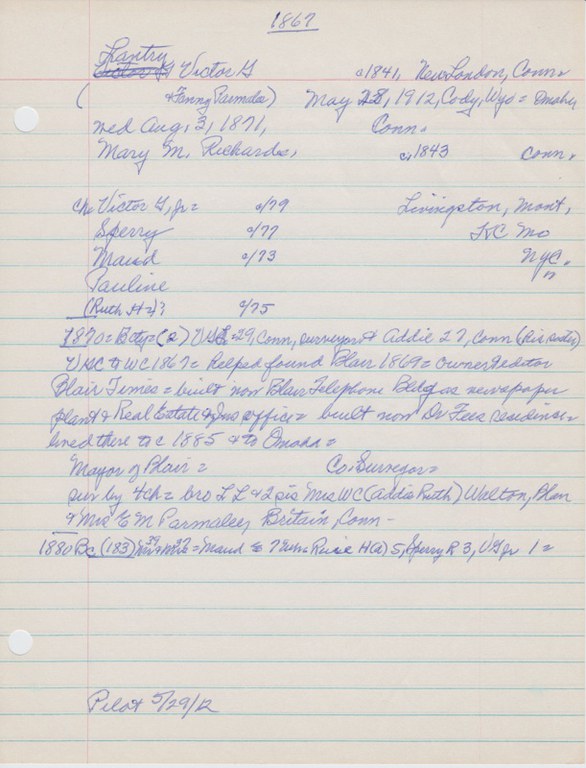 1867
Lantry
Victor G c 1841, New London, Conn.
( & Fenny Parmda) May 28, 1912, Cody, Wyo = Omaha,
wed Aug, 3, 1871, Conn.
Mary M. Richards, c, 1843 conn,
ch. Victor G, Jr = c/79 Livingston, Mont,
Sperry c/77 KC Mo
Maud c/73 NYC,
Pauline "
(Ruth H=)? c/75
1870 = Bcty = (2) VGL = 29, Conn, surveyor & Addie 27, Conn (his sister)
VG to WC 1867 = helped found Blair 1869 = owner & editor
Blair Times = built now Blair Telephone Bldg as newspaper
plant & Real Estate & Ins office = built now Dr Fees residence =
lived there to c 1885 & to Omaha =
Mayor of Blair = Co. Surveyor =
sur by 4 ch = bro L L & 2 sis Mrs WC (Addie Ruth) Walton, Blair
& Mrs E M Parmalee, Britain, Conn -
1880 Bc (183) 39 37 = Maud E 7 H(d) 5, Sperry R 3, VG Jr 1 =
Pilot 5/29/12